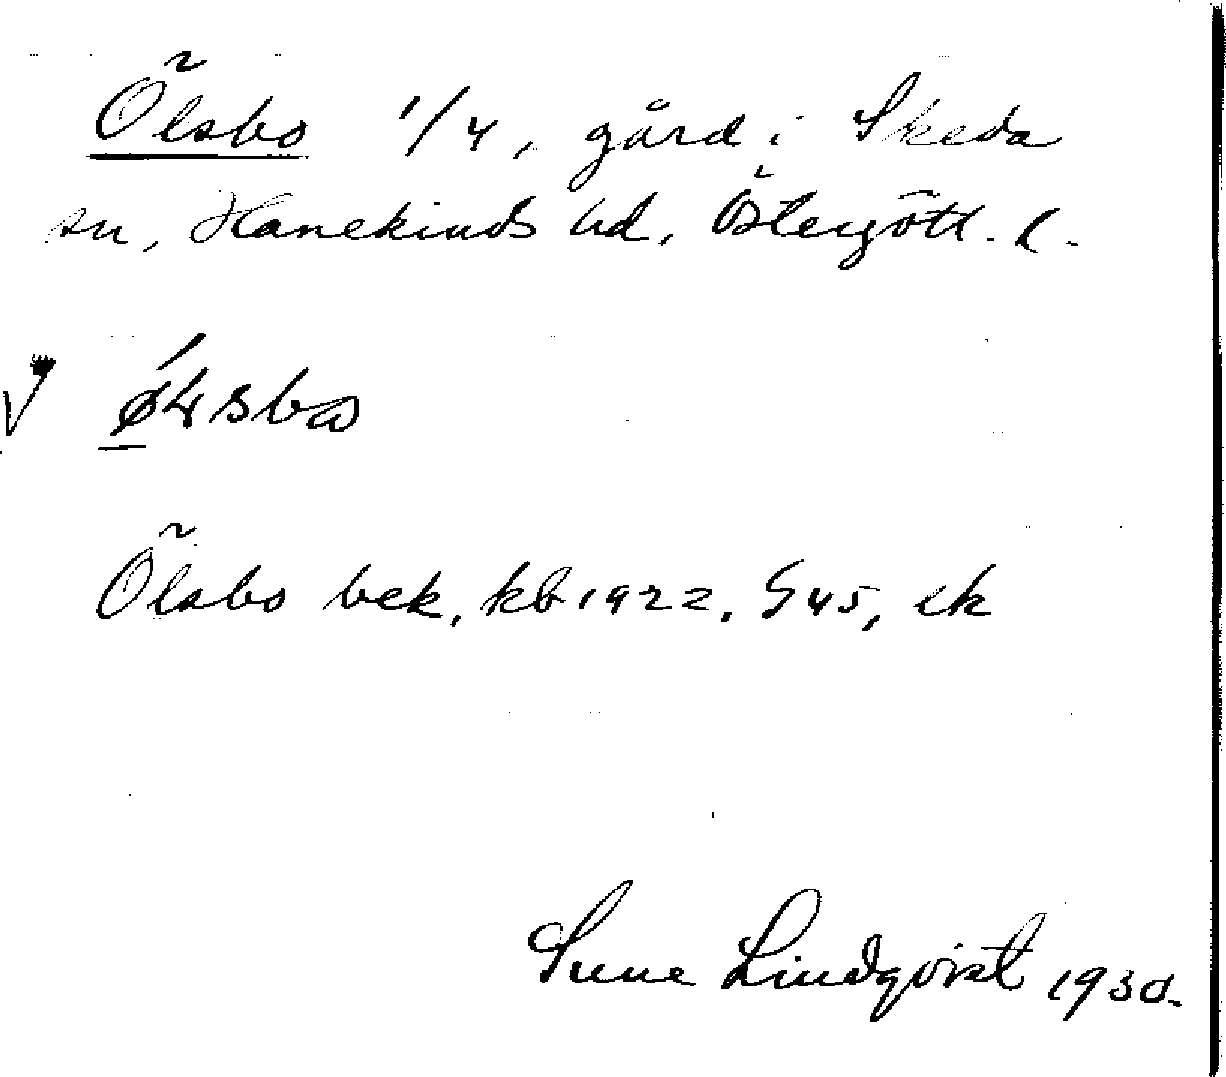 Ölsbo 1/4, gård i Skeda
sn, Hanekinds hd, Östergötl. l.
Ölsbo bek, kb 1922, S 45, ek
Sune Lindqvist 1930.